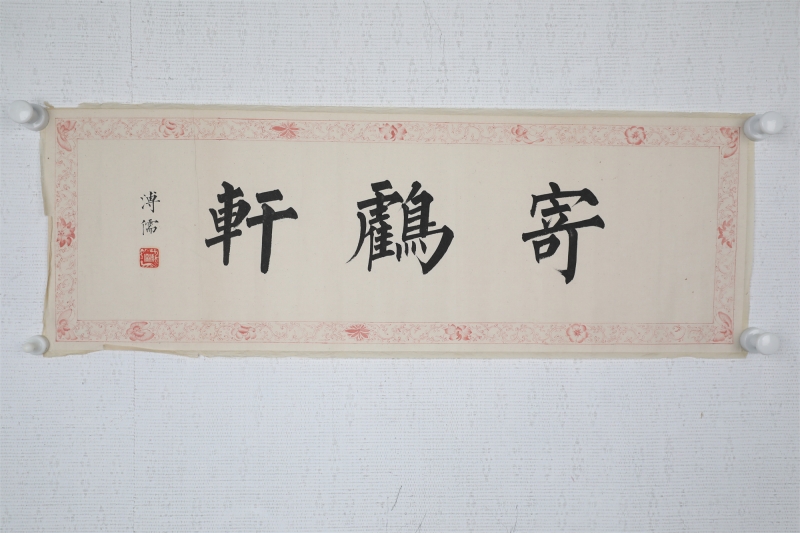 寄鶴軒
溥儒